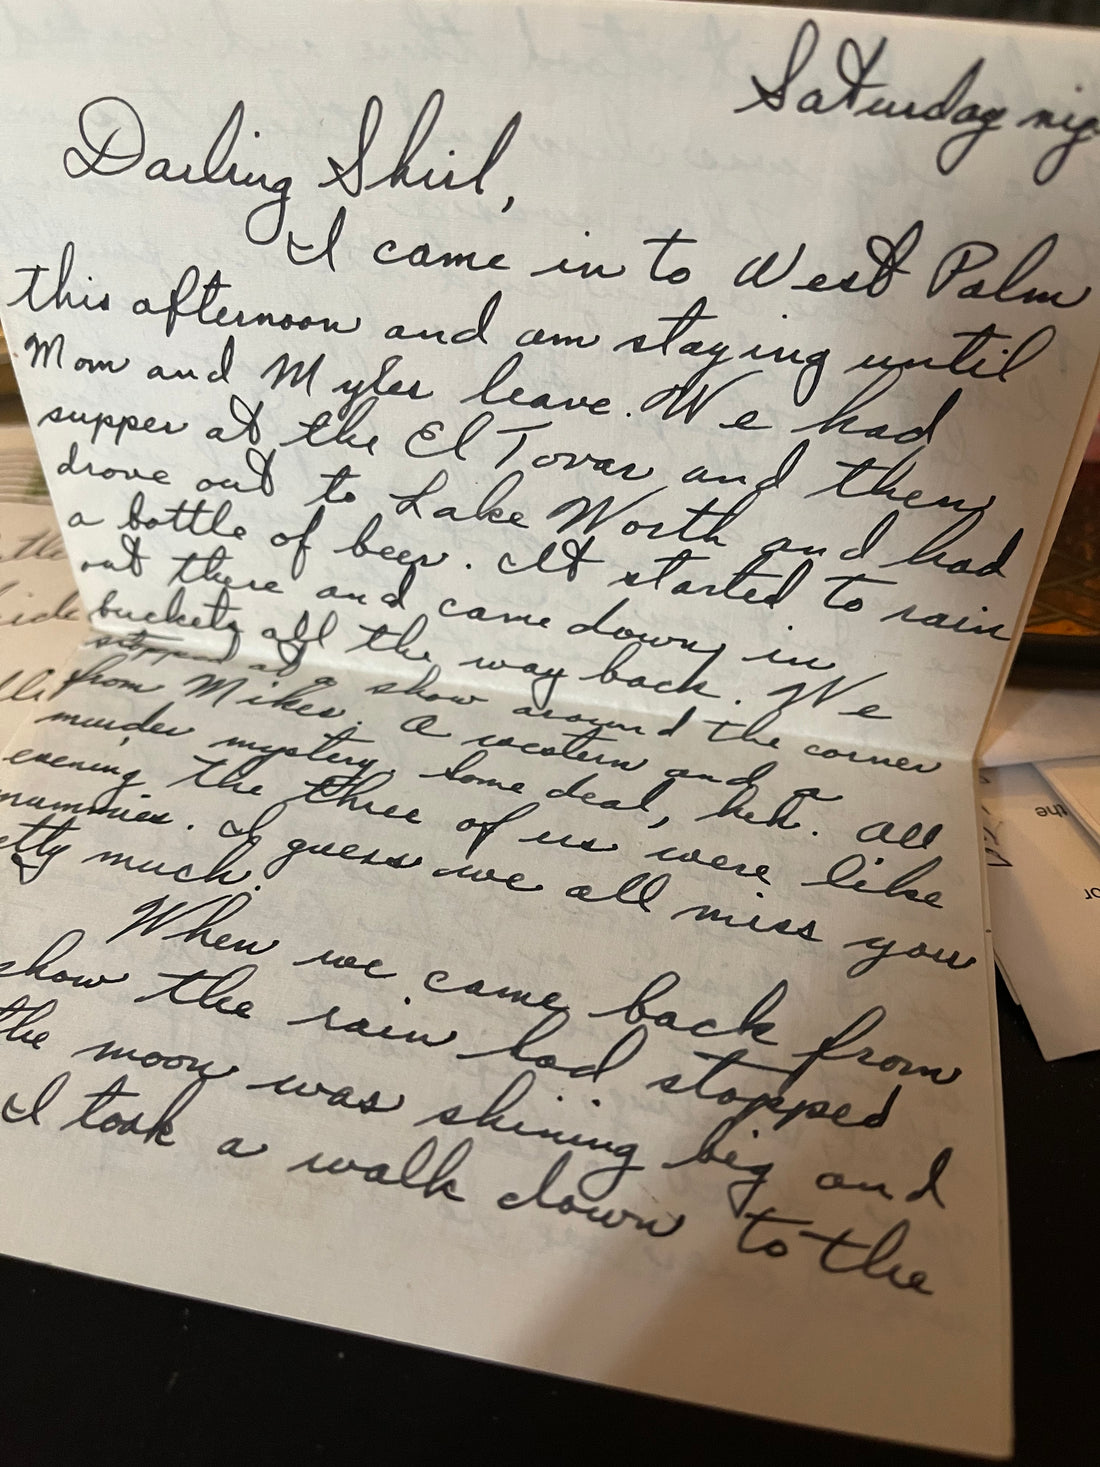 Saturday nig
Darling Shirl,
I came in to West Palm
this afternoon and am staying until
Mom and Myles leave. We had
supper at the El Tovar and then
drove out to Lake Worth and had
a bottle of beer. It started to rain
out there and came down in
buckets all the way back. We
stopped at a show around the corner
from Mikes. A western and a
murder mystery. Some deal, heh. All
evening the three of us were like
mummies. I guess we all miss you
etty much.
When we came back from
show the rain had stopped
the moon was shining big and
I took a walk down to the
the